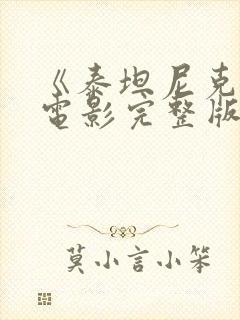 《泰坦尼克
电影完整版
莫小言小笨